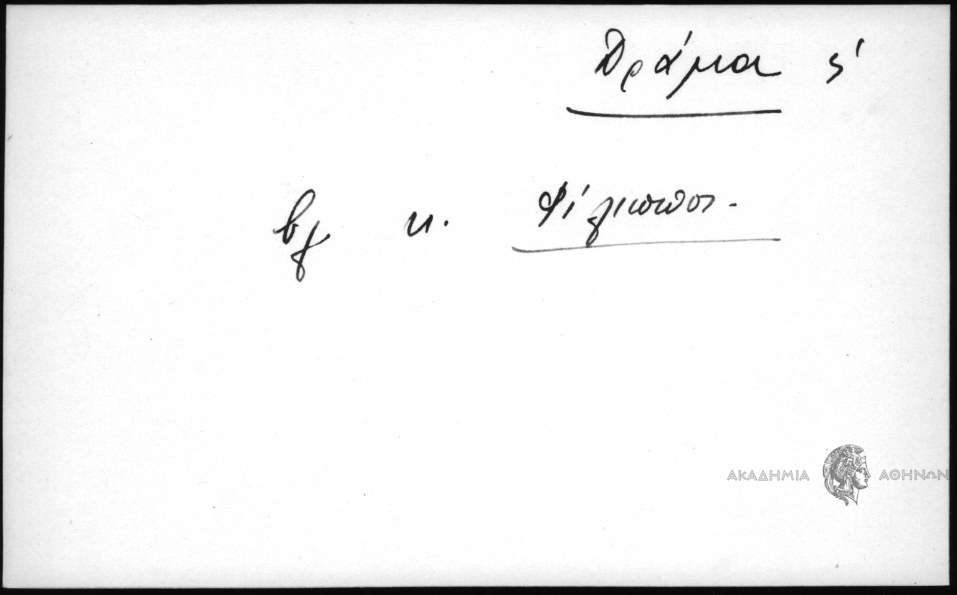 Δράμα ς'
βλ κ. Φίλιπποι.
ΑΚΑΔΗΜΙΑ ΑΘΗΝΩΝ